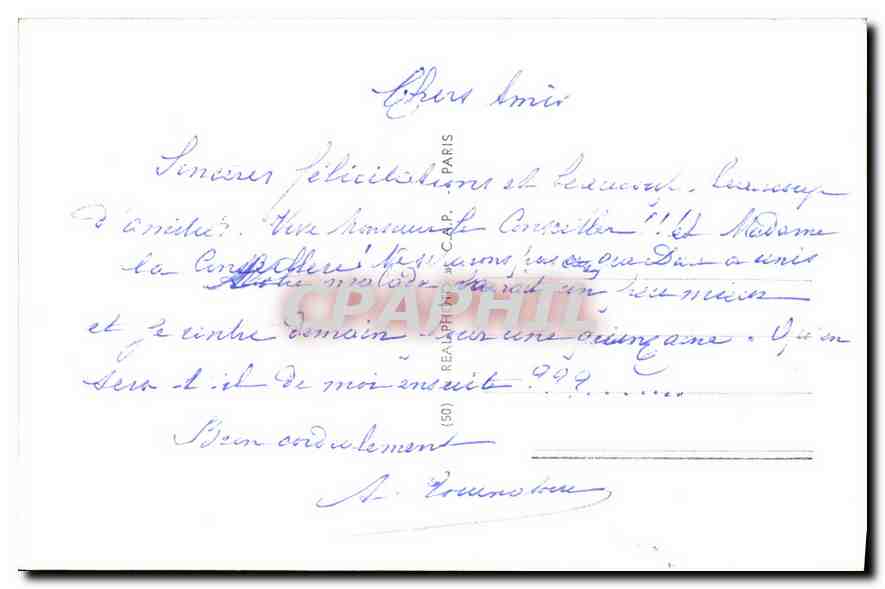 Chers Amis
Sincères félicitations et beaucoup, beaucoup
d'amitiés. Vive Monsieur le Conseiller !! et Madame
la Conseillère !
malade serait un peu mieux
et je rentre demain pour une quinzaine. Qu'en
sera-t-il de moi ensuite ? ? ? ........
Bien cordialement
A.
(50) REALPHOTO » C.A.P. - PARIS
CPAPHIL